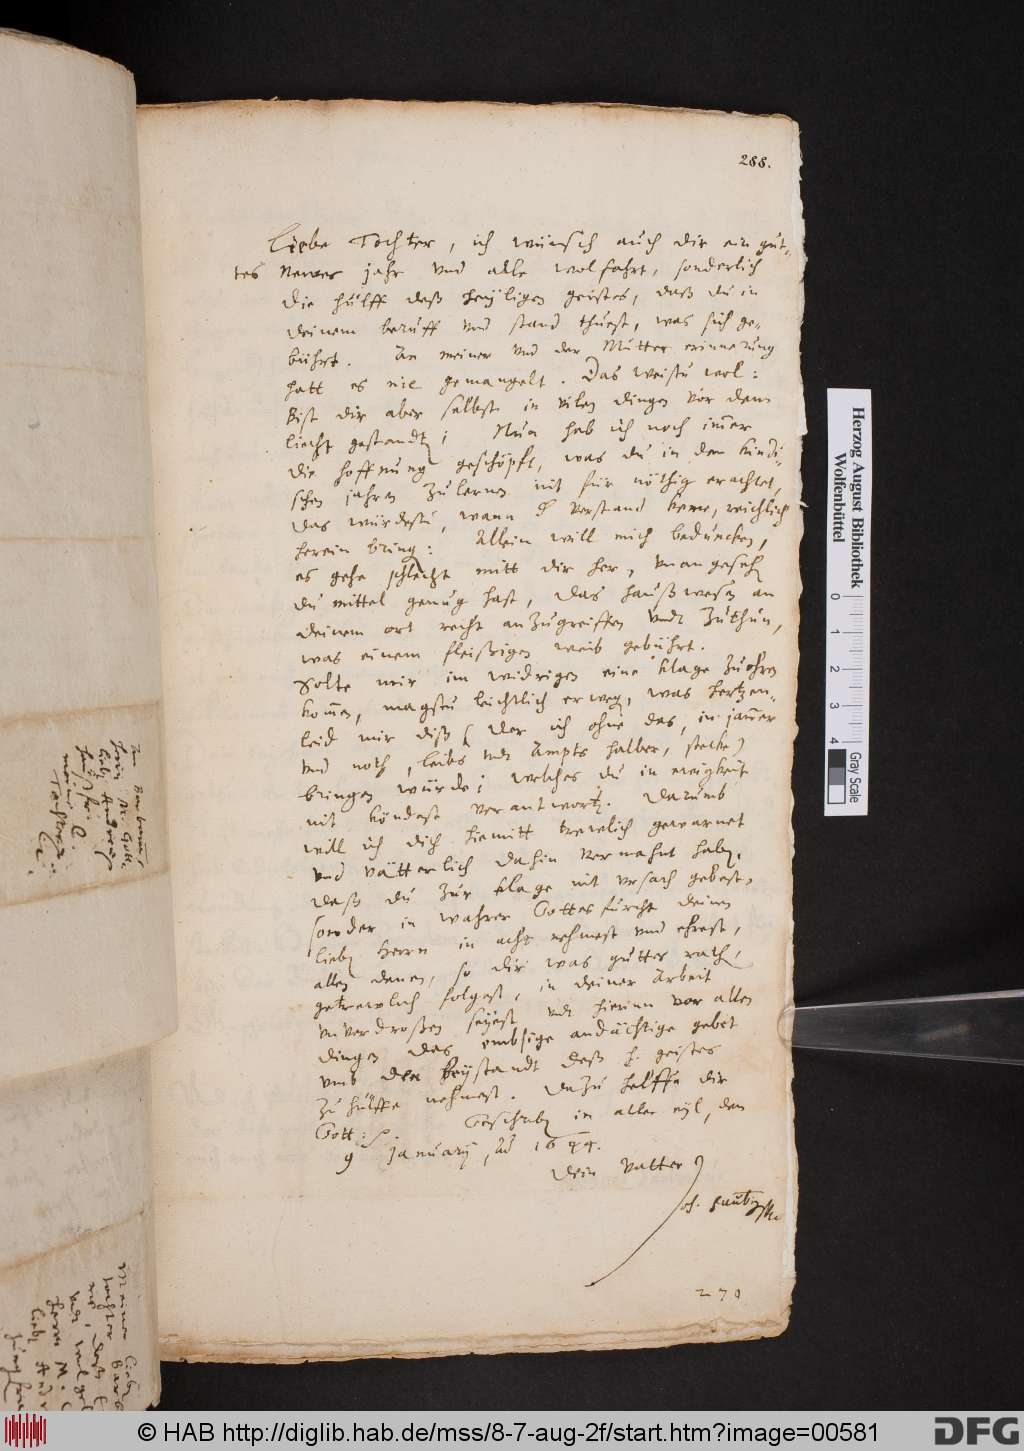 288.
Liebe Tochter, ich wünsch auch dir ein gut-
tes Newes jahr vnd alle wolfahrt, sonderlich
die hülff deß heyligen geistes, daß du in
deinem beruff vnd stand thuest, was sich ge-
bührt. An meiner vnd der Mutter erinnerung
hatt es nie gemangelt. Das weistu wol:
Bist dir aber selbst in vilen dingen vor dem
liecht gestanden; Nun hab ich noch immer
die hoffnung geschöpft, was du in den kindi-
schen jahren zulernen nit für nöthig erachtet,
das würdestu, wann d verstand kome, reichlich
herein bringen: Allein will mich beduncken,
es gehe schlecht mitt dir her, vnangesehen
du mittel genug hast, das haußwesen an
deinem ort recht anzugreiffen vndt zuthun,
was einem fleißigen weib gebührt.
Solte mir im widrigen eine klage zu ohren
kommen, magstu leichtlich erwegen, was hertzen-
leid mir diß (der ich ohne das, in jammer
vnd noth, leibs vndt Ampts halber, stecke)
bringen würde; welches du in ewigkeit
nit köndest verantworten. Darumb
will ich dich hiemitt trewlich gewarnet
vnd vätterlich dahin vermahnt haben,
daß du zur klage nit vrsach gebest,
sonder in wahrer Gottesfurcht deinen
lieben Herrn in acht nehmest vnd ehrest,
allen denen, so dir was guttes rathen,
getrewlich folgest, in deiner Arbeit
vnverdroßen seyest vndt hierinn vor allen
dingen das embsige andächtige gebet
vmb den beystandt deß h. geistes
zu hülffe nehmest. Dazu helffe dir
Gott. Geschriben in aller eyl, den
9 January, Ao 1644.
Dein Vatter
Joh. Saubertus
270
Herzog August Bibliothek
Wolfenbüttel
0 1 2 3 4
Gray Scale
© HAB http://diglib.hab.de/mss/8-7-aug-2f/start.htm?image=00581
DFG